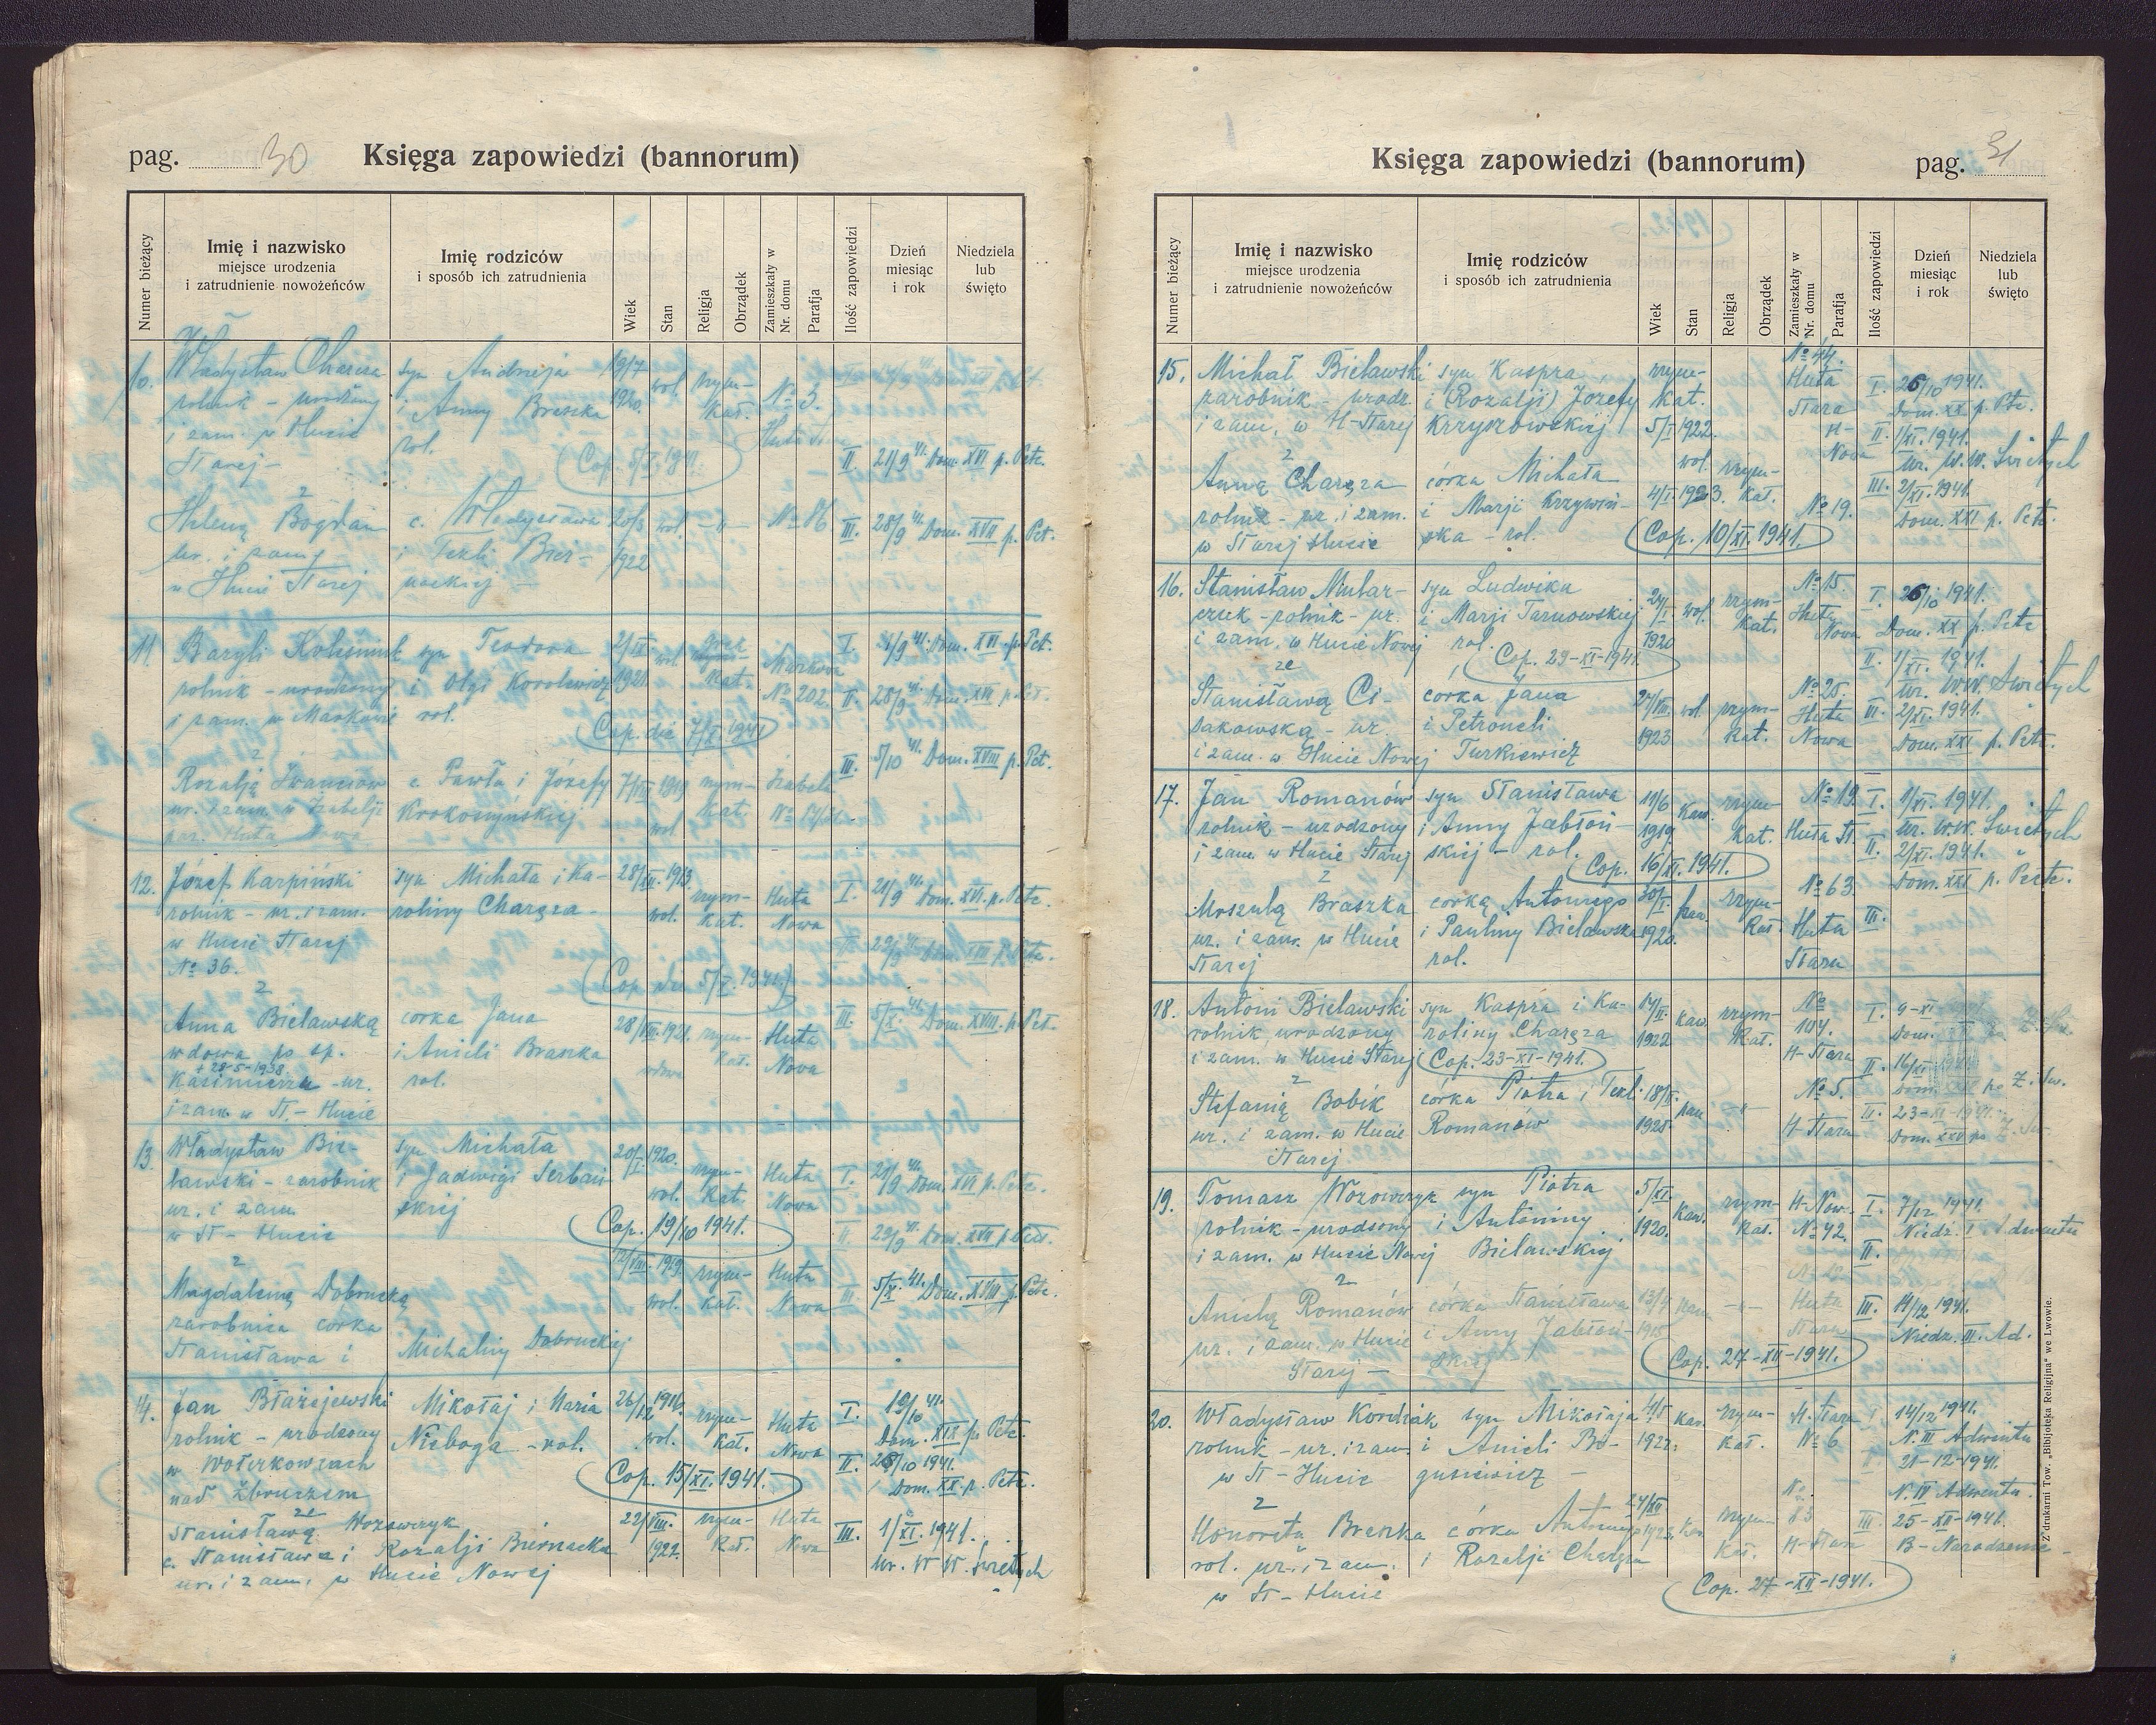 pag. 30
Księga zapowiedzi (bannorum)
Numer bieżący
Imię i nazwisko
miejsce urodzenia
i zatrudnienie nowożeńców
Imię rodziców
i sposób ich zatrudnienia
Wiek
Stan
Religja
Obrządek
Zamieszkały w
Nr. domu
Parafja
Ilość zapowiedzi
Dzień
miesiąc
i rok
Niedziela
lub
święto
10. Władysław Charęza syn Andrzeja 19/7 wol. rzym- No 3.
rolnik - urodzony i Anny Braszka 1920. kat.
i zam. w Hucie rol.
Starej - II. 21/9 41. Dom. XVI p. Petc.
2
Helenę Bogdan c. Władysława wol. -"- No 86 III. 28/9 41. Dom. XVII p. Pet.
ur. i zam. i Tekli Bier- 1922
w Hucie Starej nackiej -
11. Bazyli Kolesnink syn Teodora wol. Markowa I. 21/9 41. Dom. XVI p. Pet.
rolnik - urodzony i Olgi Korolewicz 1921. kat. No 202. II. 28/9 41. Dom. XVII p. Pet.
i zam. w Markowie rol.
Cop. die 7/X 1941
III. 5/10 41. Dom. XVIII p. Pet.
2
Rozalją Iwanciów c. Pawła i Józefy 1919 rzym- Izabela
ur. i zam. w Izabelji Krokoszyńskiej wol. kat.
par. Huta Nowa
12. Józef Karpiński syn Michała i Ka- 28/III. 1913. rzym- Huta I. 21/9 41. Dom. XVI. p. Petc.
rolnik - ur. i zam. roliny Charęza - wol. kat. Nowa
w Hucie Starej Dom. XVII p. Petc.
No 36.
Cop. 5/X. 1941.
2
Anna Bielawską córka Jana 28/VIII. 1921. rzym- Huta III. 5/X. 41. Dom. XVIII. p. Pet.
wdowa po śp. i Anieli Braszka wdowa kat. Nowa
+ 28-5-1938
Kazimierzu - ur. rol.
i zam. w St - Hucie
13. Władysław Bie- syn Michała 1920. rzym- Huta I. 21/9 41. Dom. XVI p. Petc.
lawski - zarobnik i Jadwigi Serbeń- wol. kat. Nowa
ur. i zam. skiej
w St - Hucie
Cop. 19/10 1941.
II. Dom. XVII p. Petc.
2
Magdaleną Dobrucką 12/VIII. 1919. rzym- Huta III. 5/X. 41. Dom. XVIII p. Petc.
zarobnica córka wol. kat. Nowa
Stanisława i Michaliny Dobruckiej
14. Jan Błażejewski Mikołaj i Maria 26/12 1916. rzym- Huta I. 19/10 41.
rolnik - urodzony Nieboga - rol. wol. kat. Nowa Dom. XIX p. Petc.
w Wołkowcach II. 26/10 1941.
nad Zbruczem Dom. XX. p. Petc.
Cop. 15/XI. 1941.
Stanisławą Wozowczyk 22/VIII. rzym- Huta III. 1/XI. 1941.
c. Stanisława i Rozalji Biernacka 1922. kat. Nowa Ur. W W. Świętych
ur. i zam. w Hucie Nowej
Księga zapowiedzi (bannorum)
pag. 31
Numer bieżący
Imię i nazwisko
miejsce urodzenia
i zatrudnienie nowożeńców
Imię rodziców
i sposób ich zatrudnienia
Wiek
Stan
Religja
Obrządek
Zamieszkały w
Nr. domu
Parafja
Ilość zapowiedzi
Dzień
miesiąc
i rok
Niedziela
lub
święto
15. Michał Bielawski syn Kaspra rzym- No 44. Huta I. 26/10 1941.
zarobnik - urodz. i (Rozalji) Józefy kat. Stara Dom. XX p. Ptc.
i zam. w H-Starej Krzyszowskiej 5/I 1922. H- Nowa II. 1/XI. 1941.
wol. Ur. W.W. Świętych
2
Anną Charęza córka Michała rzym- III. 2/XI. 1941.
rolnik - ur. i zam. i Marji Krzywiń- 4/I. 1923. kat. No 19. Dom. XXI p. Petc.
w Starej Hucie ska - rol.
Cop. 10/XI. 1941.
16. Stanisław Mular- syn Ludwika wol. rzym- No 15. I. 26/10 1941.
czuk - rolnik - ur. i Marji Tarnowskiej 1920 kat. Huta Nowa Dom. XX p. Petc
i zam. w Hucie Nowej rol. II. 1/XI. 1941.
Cop. 29-XI-1941.
ze Ur. W.W. Świętych
Stanisławą Ci- córka Jana 27/VIII. wol. rzym- No 25. III. 2/XI. 1941.
sakowską - ur. i Petroneli 1923 kat. Huta Dom. XXI p. Petc.
i zam. w Hucie Nowej Turkiewicz Nowa
17. Jan Romanów syn Stanisława 11/6 kaw. rzym- No 19. I. 1/XI. 1941.
rolnik - urodzony i Anny Jabłoń- 1919. kat. Huta St. Ur. W.W. Świętych
i zam. w Hucie Starej skiej - rol. II. 2/XI. 1941.
Cop. 16/XI. 1941.
Dom. XXI p. Petc.
2
Urszulą Braszka córką Antoniego 30/I. pan. rzym- No 63. III.
ur. i zam. w Hucie i Pauliny Bielawska 1920. kat. Huta
Starej rol. Stara
18. Antoni Bielawski syn Kaspra i Ka- 17/II. kaw. rzym- No 104. I. 9-XI
rolnik, urodzony roliny Charęza 1922 kat. H-Stara Dom.
i zam. w Hucie Starej Cop. 23-XI-1941. II. 16/XI
2
Stefanią Bobik córka Piotra i Tekl. 18/II. pan. -"- No 5. III. 23-XI-1941.
ur. i zam. w Hucie Romanów 1925. H-Stara Dom. XXV po Z. Św.
Starej
19. Tomasz Wozowczyk syn Piotra 5/XI. kaw. rzym- H-Now. I. 7/12 1941.
rolnik - urodzony i Antoniny 1920. kat. No 42. Niedz. I Adwentu
i zam. w Hucie Nowej Bielawskiej II.
2
Anielą Romanów córka Stanisława 13/4 pan. -"- Huta III. 14/12 1941.
ur. i zam. w Hucie i Anny Jabłoń- 1915 Stara Niedz. III. Ad.
Starej - skiej -
Cop. 27-XII-1941.
20. Władysław Kordiak syn Mikołaja kaw. rzym- H. Stara I 14/12 1941.
rolnik - ur. i zam. i Anieli Bo- 1922. kat. No 6 N. III Adwentu
w St - Hucie gusiewicz - 21-12-1941.
N. IV Adwentu.
2
Honorata Braszka córka Antoniego 24/XII. rzym- No 83 III. 25-XII-1941.
rol. ur. i zam. i Rozalji Charęza kat. H-Stara B-Narodzenie -
w St - Hucie
Cop. 27-XII-1941.
Z drukarni Tow. „Bibljoteka Religijna“ we Lwowie.